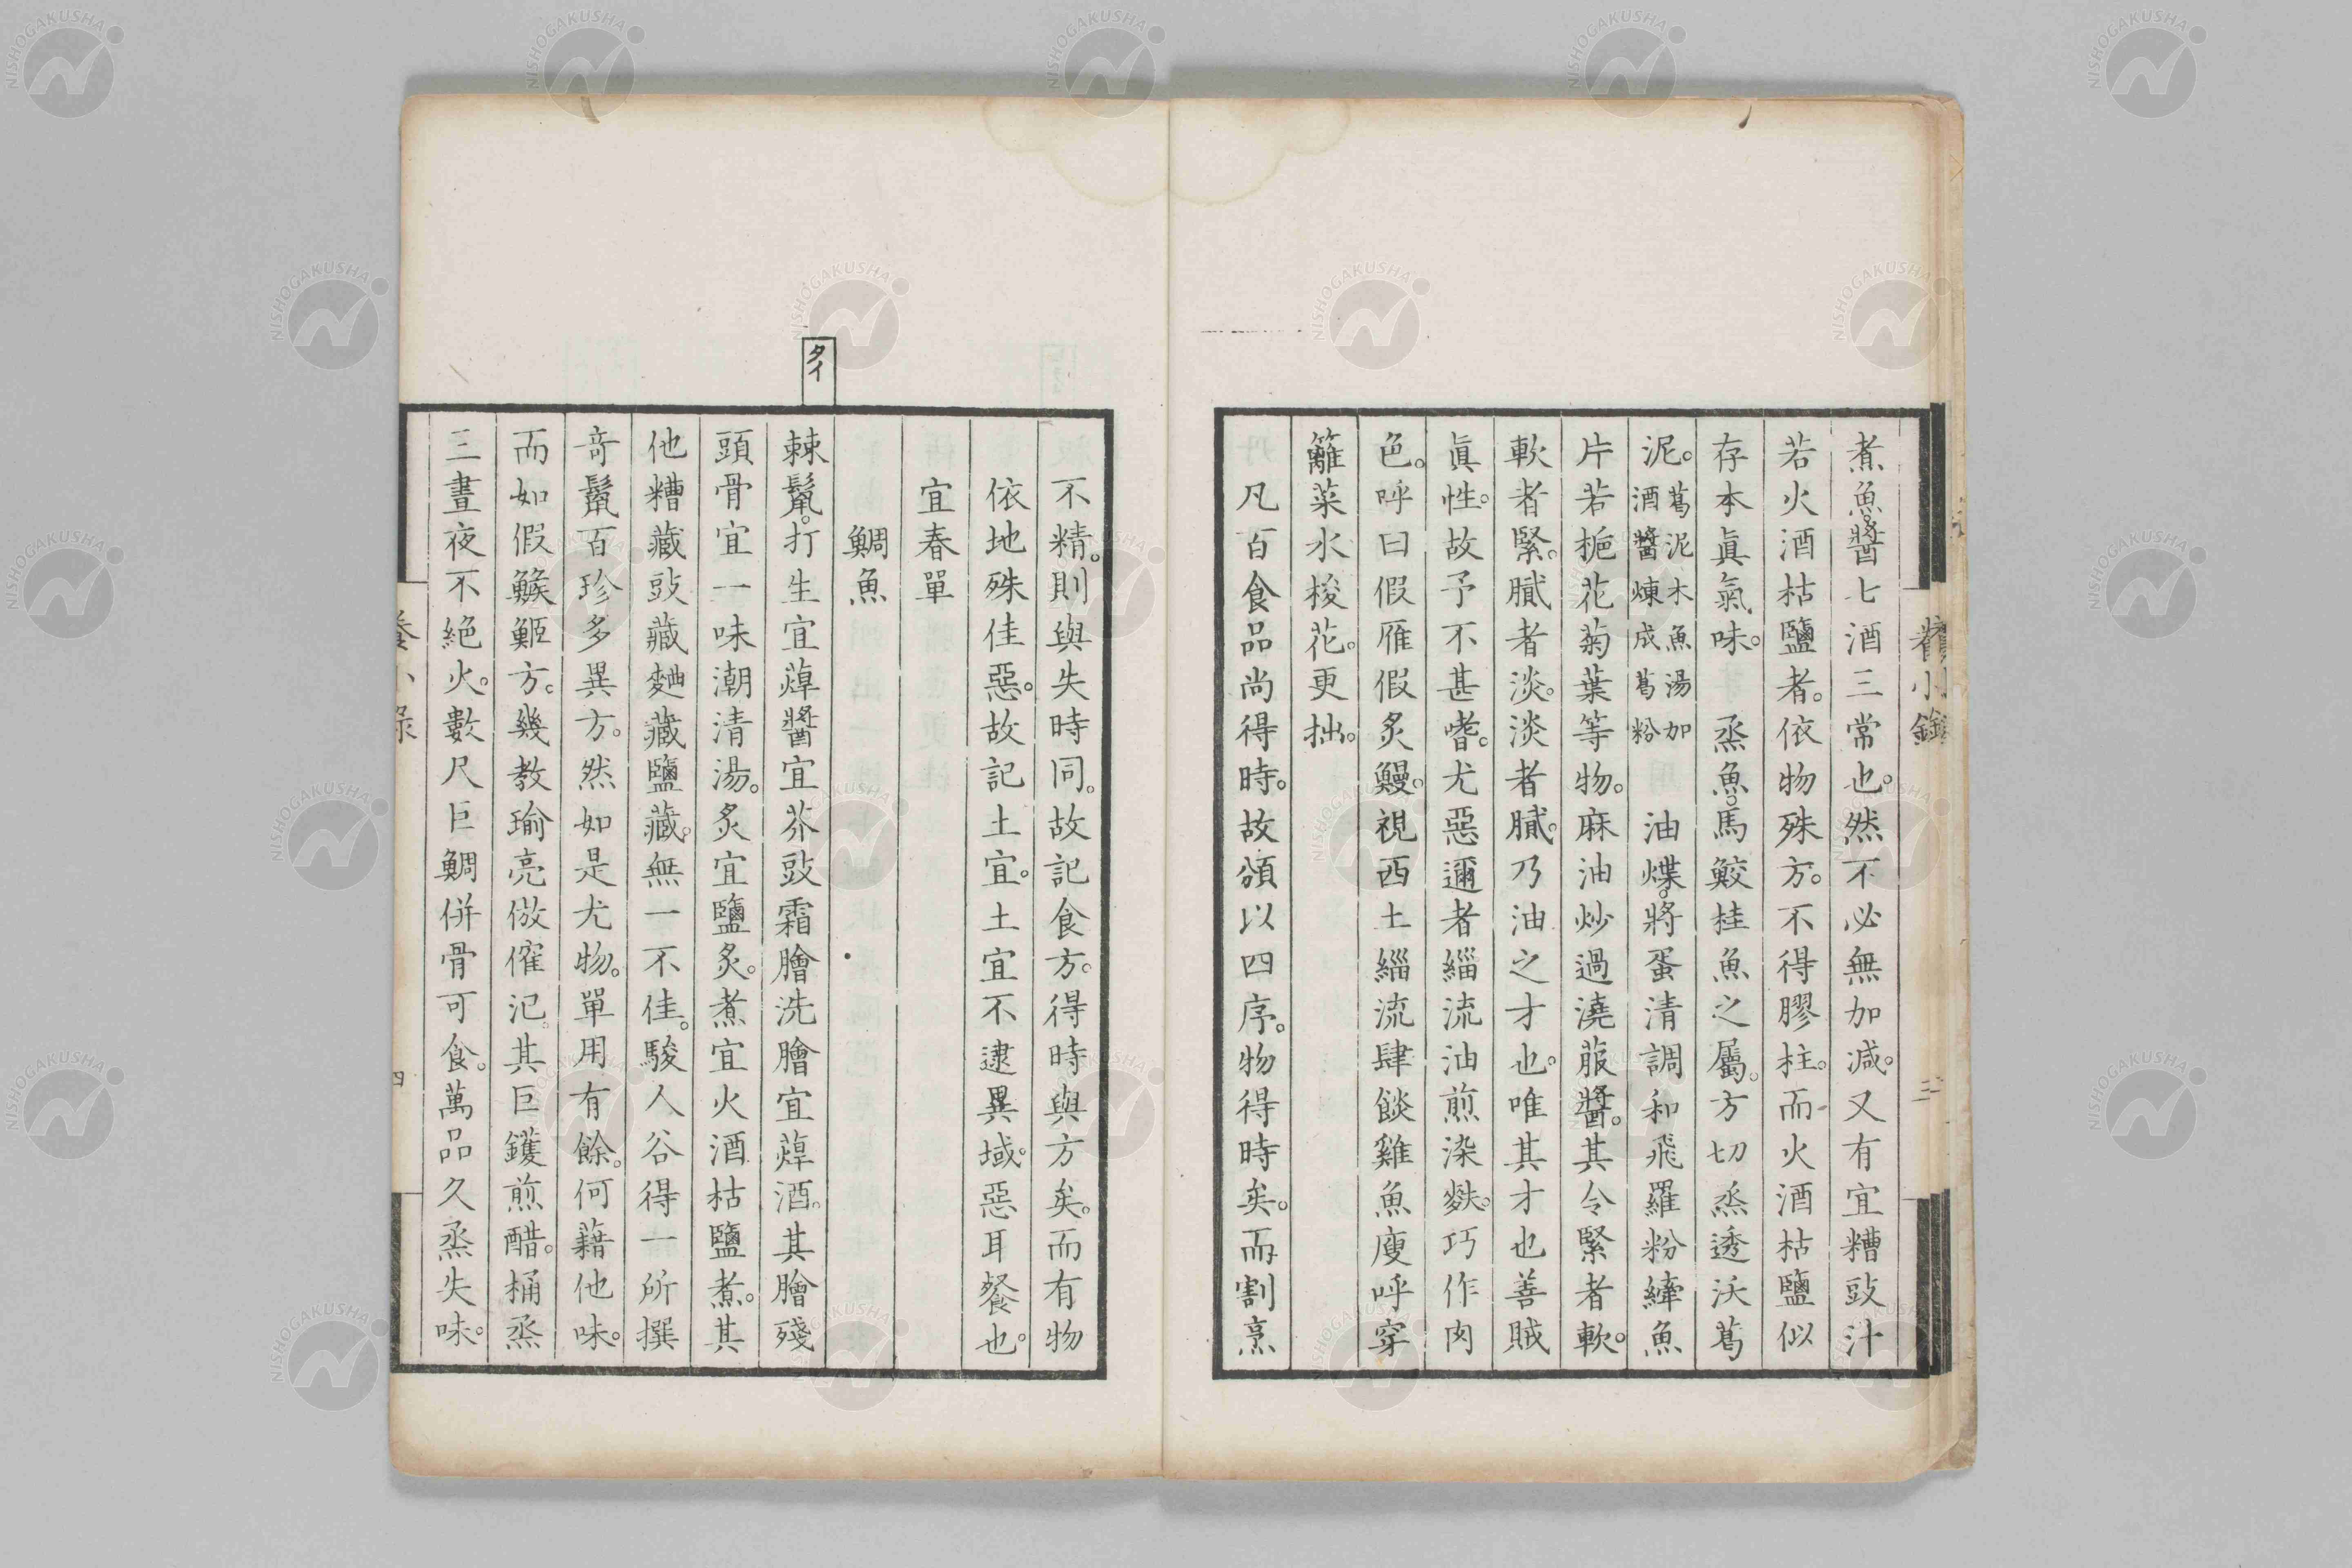 養小錄
三
煮魚。醬七酒三常也。然不必無加減。又有宜糟豉汁
若火酒枯鹽者。依物殊方。不得膠柱。而火酒枯鹽似
存本眞氣味。 烝魚。馬鮫桂魚之屬。方切烝透沃葛
泥。葛泥木魚湯加酒醬煉成葛粉 油煠。將蛋清調和飛羅粉縴魚
片若梔花菊葉等物。麻油炒過澆菔醬。其令緊者軟。
軟者緊。膩者淡。淡者膩。乃油之才也。唯其才也善賊
眞性。故予不甚嗜。尤惡邇者緇流油煎染麩。巧作肉
色。呼曰假雁假炙鰻。視西土緇流肆餤雞魚廋呼穿
籬菜水梭花。更拙。
凡百食品尚得時。故頒以四序。物得時矣。而割烹
不精。則與失時同。故記食方。得時與方矣。而有物
依地殊佳惡。故記土宜。土宜不逮異域。惡耳餐也。
宜春單
タイ
鯛魚
棘鬣。打生宜䓬醬宜芥豉霜膾洗膾宜䓬酒。其膾殘
頭骨宜一味潮清湯。炙宜鹽炙。煮宜火酒枯鹽煮。其
他糟藏豉藏麯藏鹽藏。無一不佳。駿人谷得一所撰
奇鬣百珍多異方。然如是尤物。單用有餘。何藉他味。
而如假鯸鮔方。幾教瑜亮倣傕汜。其巨鑊煎醋。桶烝
三晝夜不絕火。數尺巨鯛併骨可食。萬品久烝失味。
養小錄
四